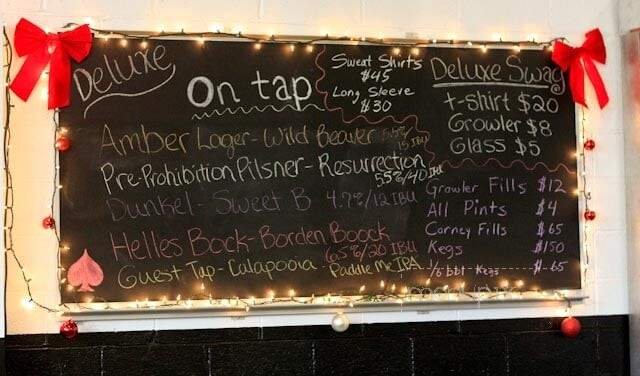 Deluxe
On tap
Amber Lager - Wild Beaver 5.5%
15 IBU
Pre-Prohibition Pilsner - Resurrection
5.5%/40 IBU
Dunkel - Sweet B 4.7%/12 IBU
Helles Bock - Borden Boock
6.5%/20 IBU
Guest Tap - Calapooia - Paddle Me IPA
Sweat Shirts
$45
Long Sleeve
$30
Deluxe Swag
t-shirt $20
Growler $8
Glass $5
Growler Fills $12
All Pints $4
Corney Fills $65
Kegs $150
1/6 bbl - Kegs $65